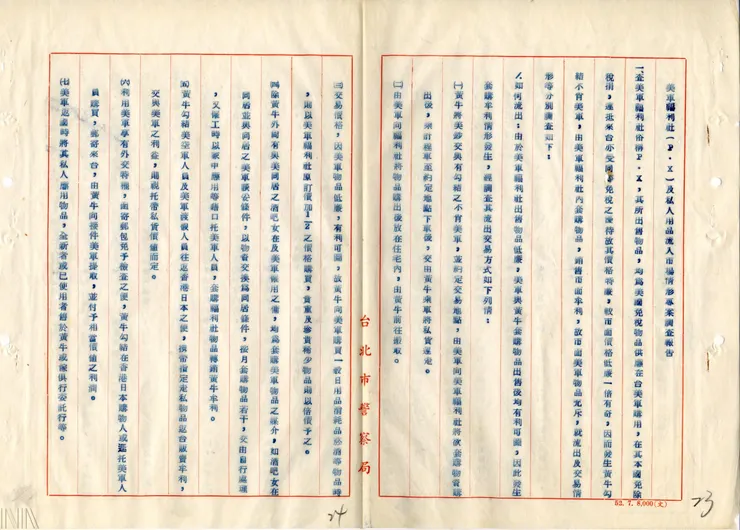 美軍福利社(P.X)及私人用品流入市場情形專案調查報告
一、查美軍福利社俗稱P.X,其所出售物品,均為美國免稅物品供應在台美軍購用,在其本國免除
稅捐,運抵來台亦受國家免稅之優待故其價格特廉,較市面價格低廉一倍有奇,因而發生黃牛勾
結不肖美軍,由美軍福利社內套購物品,銷售市面牟利,故市面美軍物品充斥,就流出及交易情
形等分別調查如下:
1.如何流出:由於美軍福利社出售物品低廉,美軍與黃牛套購物品出售後均有利可圖,因此發生
套購牟利情形發生,經調查其流出交易方式如下列情:
(一)黃牛將美鈔交與有勾結之不肖美軍,並約定交易地點,由美軍向美軍福利社將欲套購物資購
出後,乘計程車至約定地點下車後,交由黃牛乘車將私貨運走。
(二)由美軍向福利社將物品購出後放在住宅內,由黃牛前往搬取。
台北市警察局
(三)交易價格,因美軍物品低廉,有利可圖,故黃牛向美軍購買一般日用品消耗品必需等物品時
,則以美軍福利社原訂價加1/2之價格購買,貴重及珍貴稀少物品則以倍價予之。
(四)除黃牛外尚有與美同居之酒吧女在及美軍僱用之傭,均為套購美軍物品之媒介,如酒吧女在
同居並與同居之美軍談妥條件,以物資交換為同居條件,按月套購物品若干,交由自行處理
,又傭工時以家中應用等藉口托美軍人員,套購福利社物品轉銷黃牛牟利。
(五)黃牛勾結美空軍人員及美軍後勤人員往返香港日本之便,攜帶指定走私物品返台販賣牟利,
交與美軍之利益,則視托帶私貨價值而定。
(六)利用美軍享有外交特權,而寄郵包免予檢查之便,黃牛勾結在香港日本購物人或逕托美軍人
員購買,郵寄來台,由黃牛向接件美軍提取,並付予相當價值之利潤。
(七)美軍返國時將其私人應用物品,全新者或已使用者售於黃牛或傢俱行委託行等。
52.7.8,000(文)
23
24